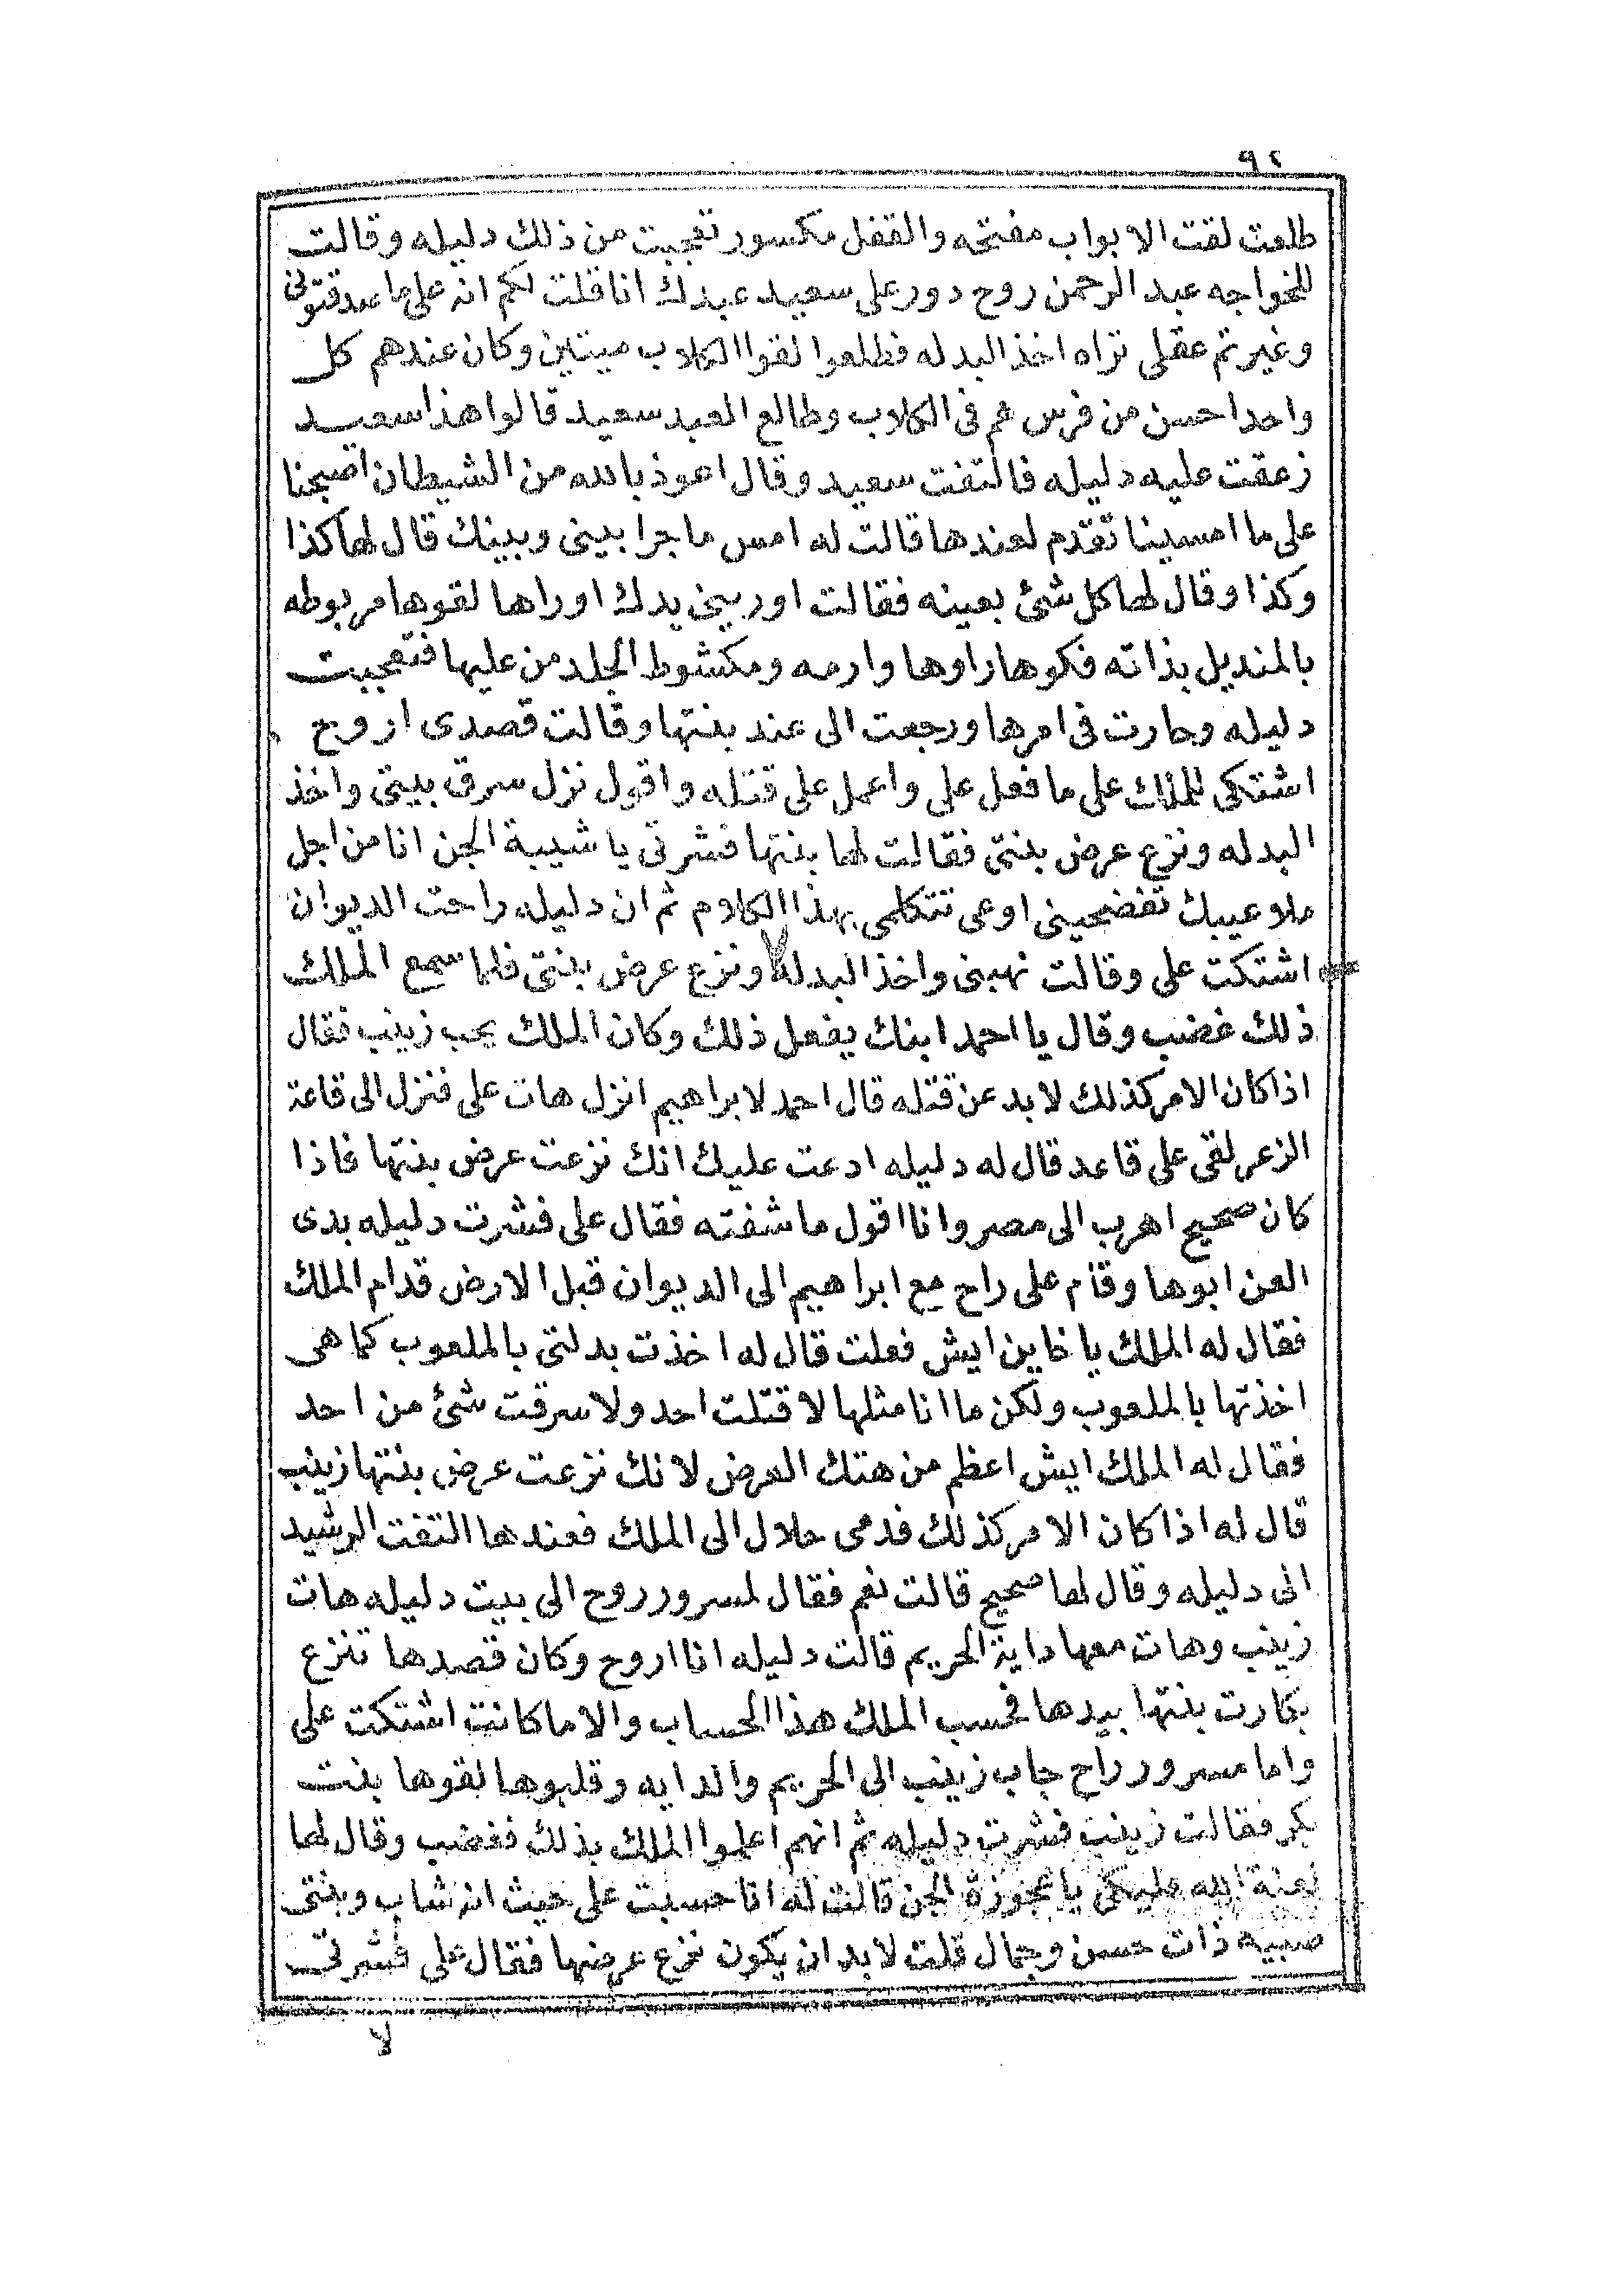 ٩٤
طلعت لقت الابواب مفتحه والقفل مكسور تعجبت من ذلك دليله وقالت
للخواجه عبد الرحمن روح دور على سعيد عبدك انا قلت لكم انه على ما صدقتونى
وغيرتم عقلى تراه اخذ البدله فطلعوا لقوا الكلاب ميتين وكان عندهم كل
واحد احسن من فرس هم فى الكلاب وطالع العبد سعيد قالوا هذا سعيد
زعقت عليه دليله فالتفت سعيد وقال اعوذ بالله من الشيطان اصبحنا
على ما امسينا تقدم لعندها قالت له امس ما جرا بينى وبينك قال لها كذا
وكذا وقال لها كل شئ بعينه فقالت اورينى يدك اوراها لقوها مربوطه
بالمنديل بذاته فكوها راوها وارمه ومكشوط الجلد من عليها فتعجبت
دليله وحارت فى امرها ورجعت الى عند بنتها وقالت قصدى اروح
اشتكى للملك على ما فعل على واعمل على قتله واقول نزل سرق بيتى واخذ
البدله ونزع عرض بنتى فقالت لها بنتها فشرتى يا شيبة الجن انا من اجل
ملاعيبك تفضحينى اوعى تتكلمى بهذا الكلام ثم ان دليله راحت الديوان
اشتكت على وقالت نهبنى واخذ البدله ونزع عرض بنتى فلما سمع الملك
ذلك غضب وقال يا احمد ابنك يفعل ذلك وكان الملك يحب زينب فقال
اذا كان الامر كذلك لا بد عن قتله قال احمد لابراهيم انزل هات على فنزل الى قاعة
الزعر لقى على قاعد قال له دليله ادعت عليك انك نزعت عرض بنتها فاذا
كان صحيح اهرب الى مصر وانا اقول ما شفته فقال على فشرت دليله بدى
العن ابوها وقام على راح مع ابراهيم الى الديوان قبل الارض قدام الملك
فقال له الملك يا خاين ايش فعلت قال له اخذت بدلتى بالملعوب كما هى
اخذتها بالملعوب ولكن ما انا مثلها لا قتلت احد ولا سرقت شئ من احد
فقال له الملك ايش اعظم من هتك العرض لانك نزعت عرض بنتها زينب
قال له اذا كان الامر كذلك فدمى حلال الى الملك فعندها التفت الرشيد
الى دليله وقال لها صحيح قالت نعم فقال لمسرور روح الى بيت دليله هات
زينب وهات معها داية الحريم قالت دليله انا اروح وكان قصدها تنزع
بكارت بنتها بيدها فحسب الملك هذا الحساب والا ما كانت اشتكت على
واما مسرور راح جاب زينب الى الحريم والدايه وقلبوها لقوها بنت
بكر فقالت زينب فشرت دليله ثم انهم اعلموا الملك بذلك فغضب وقال لها
لعنة الله عليكى يا عجوزة الجن قالت له انا حسبت على حيث انه شاب وبنتى
صبيه ذات حسن وجمال قلت لا بد ان يكون نزع عرضها فقال على فشرتى
لا